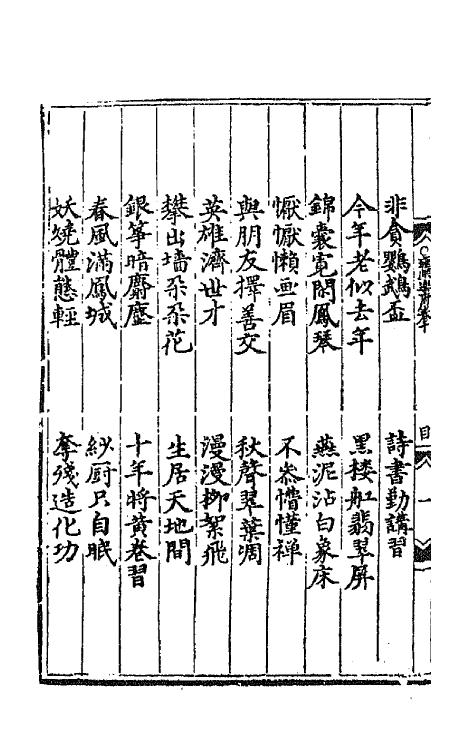 非貪鸚鵡盃
詩書勤講習
今年老似去年
黑棱舡翡翠屏
錦囊寬閣鳳琴
燕泥沾白象床
懨懨懶画眉
不叅懵懂禅
與朋友擇善交
秋聲翠葉凋
英雄濟世才
漫漫柳絮飛
攀出墻朶朶花
生居天地間
銀筝暗麝塵
十年將黄卷習
春風滿鳳城
紗厨只自眠
妖嬈體態輕
奪殘造化功
目
一